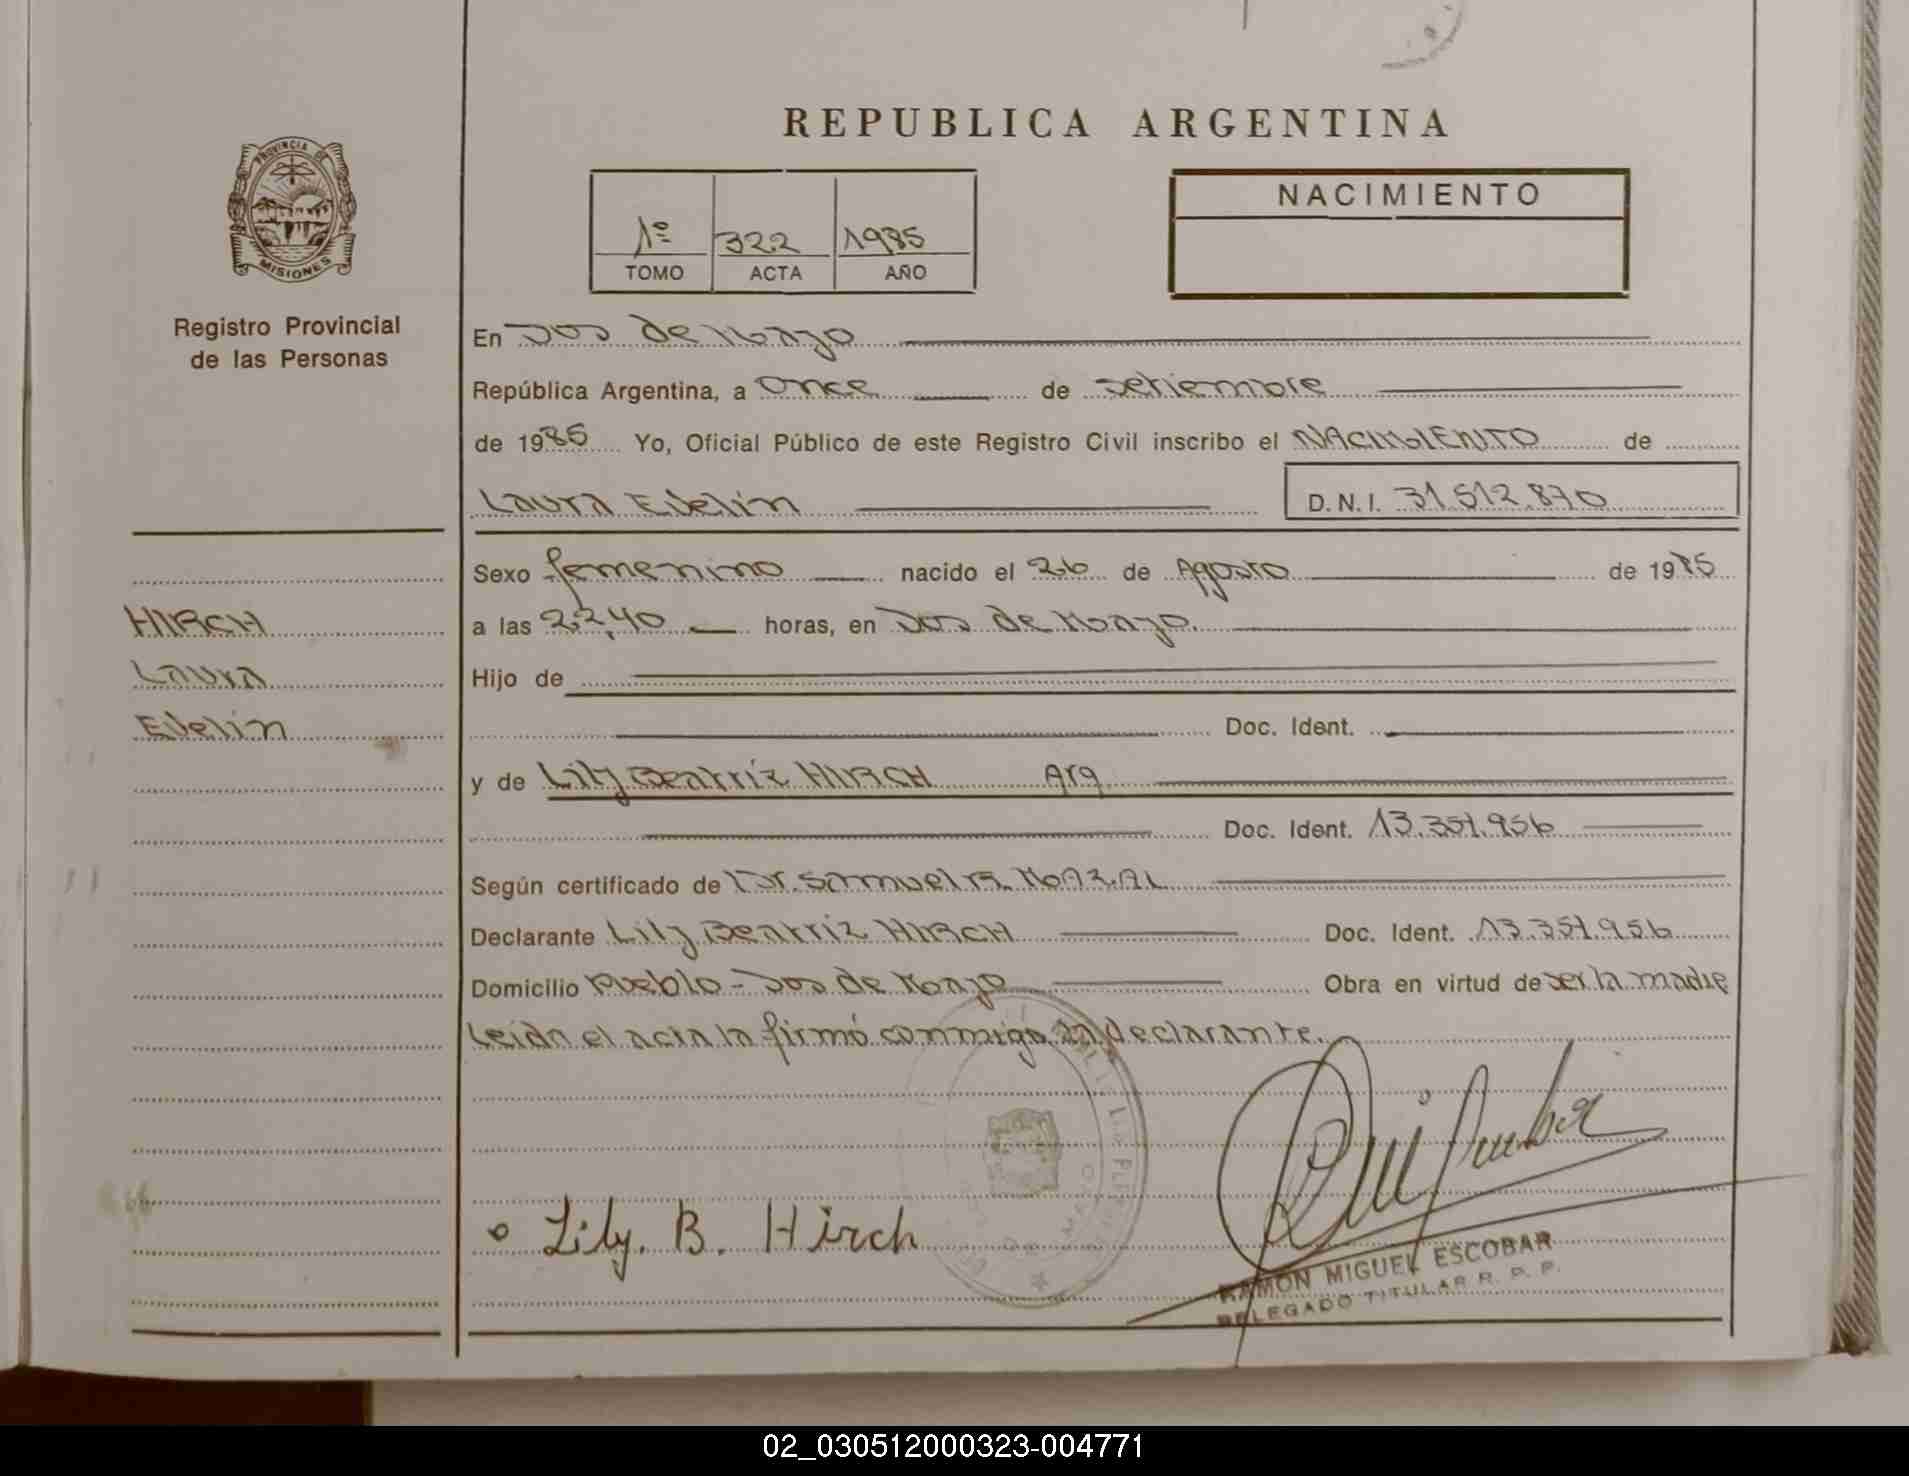 REPUBLICA ARGENTINA
PROVINCIA DE
MISIONES
Registro Provincial
de las Personas
1º 322 1985
TOMO ACTA AÑO
NACIMIENTO
En Dos de Mayo
República Argentina, a once de setiembre
de 1985 Yo, Oficial Público de este Registro Civil inscribo el NACIMIENTO de
Laura Evelin D.N.I. 31.512.870
Sexo femenino nacido el 26 de Agosto de 1985
HIRCH
a las 22,40 horas, en Dos de Mayo.
Laura
Hijo de
Evelin
Doc. Ident.
y de Lily Beatríz HIRCH Arg.
Doc. Ident. 13.351.956
Según certificado de Dr. Samuel R. MAZAL
Declarante Lily Beatriz HIRCH Doc. Ident. 13.351.956
Domicilio Pueblo - Dos de Mayo Obra en virtud de ser la madre
Leída el acta la firmó conmigo la declarante.
Lily. B. Hirch
RAMON MIGUEL ESCOBAR
DELEGADO TITULAR R. P. P.
02_030512000323-004771